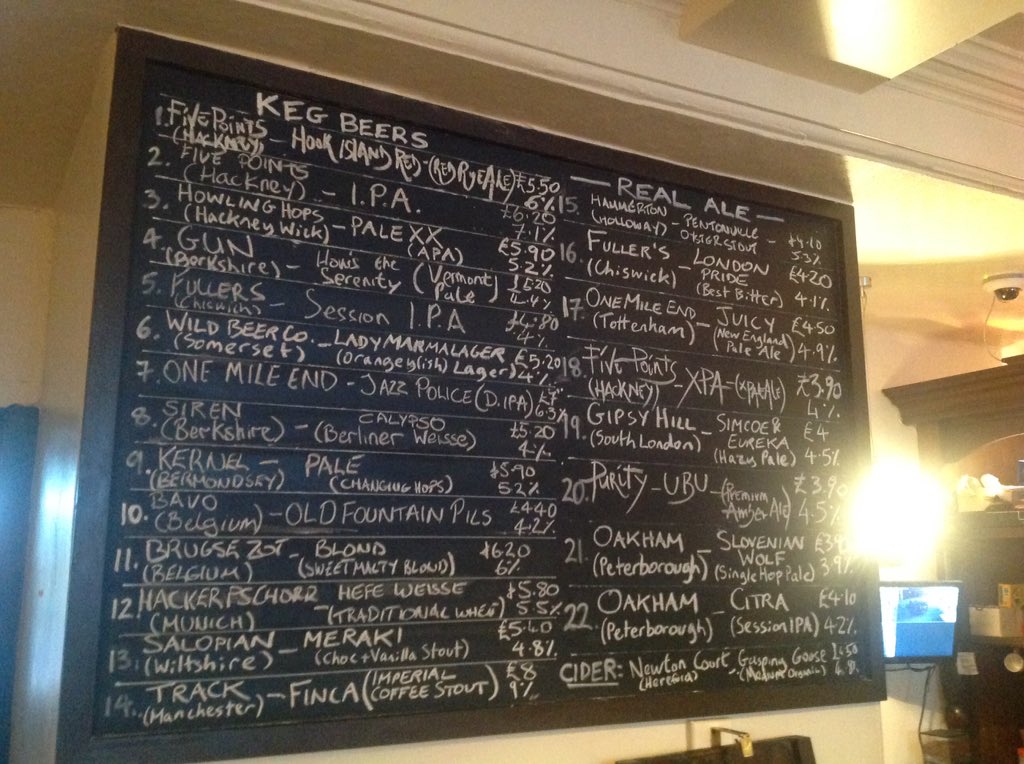 KEG BEERS
1. FIVE POINTS - HOOK ISLAND RED - (RED RYE ALE) £5.50
(HACKNEY) 6%
2. FIVE POINTS - I.P.A. £6.20
(Hackney) 7.1%
3. HOWLING HOPS - PALE XX £5.90
(Hackney Wick) (APA) 5.2%
4. GUN - How's the (Vermont £5.20
(Berkshire) Serenity Pale) 4.4%
5. FULLERS - Session I.P.A £4.80
(Chiswick) 4%
6. WILD BEER CO. - LADY MARMALAGER £5.20
(Somerset) (Orangeyish) Lager) 4%
7. ONE MILE END - JAZZ POLICE (D.IPA) £7
6.3%
8. SIREN - CALYPSO £5.20
(Berkshire) (Berliner Weisse) 4%
9. KERNEL - PALE £5.90
(BERMONDSEY) (CHANGING HOPS) 5.2%
10. BAVO - OLD FOUNTAIN PILS £4.40
(Belgium) 4.2%
11. BRUGSE ZOT - BLOND £6.20
(BELGIUM) (SWEET MALTY BLOND) 6%
12. HACKER PSCHORR HEFE WEISSE £5.80
(MUNICH) - (TRADITIONAL WHEAT) 5.5%
13. SALOPIAN - MERAKI £5.40
(Wiltshire) (Choc + Vanilla Stout) 4.8%
14. TRACK - FINCA (IMPERIAL £8
(Manchester) COFFEE STOUT) 9%
- REAL ALE -
15. HAMMERTON - PENTONVILLE - £4.10
(HOLLOWAY) OYSTER STOUT 5.3%
16. FULLER'S - LONDON £4.20
(Chiswick) PRIDE
(Best Bitter) 4.1%
17. ONE MILE END - JUICY £4.50
(Tottenham) (New England
Pale Ale) 4.9%
18. Five Points - XPA - (XPALE ALE) £3.90
(HACKNEY) 4%
19. GIPSY HILL - SIMCOE & £4
(South London) EUREKA
(Hazy Pale) 4.5%
20. PURITY - UBU - (Premium £3.90
Amber Ale) 4.5%
21. OAKHAM - SLOVENIAN
(Peterborough) WOLF
(Single Hop Pale) 3.9%
22. OAKHAM - CITRA £4.10
(Peterborough) (Session IPA) 4.2%
CIDER: Newton Court Gasping Goose